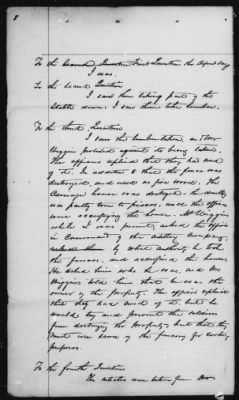 8
To the Second Question First Question the deponent says
I was.
To the Second Question
I saw them taking part of the
stables down. I saw them take lumber.
To the third Question
I saw the lumber taken, and Mr
Wiggins protested against its being taken.
The officers replied that they had need
of it. In addition to that the fence was
destroyed, and used as fire wood. The
carriage house was destroyed. The dwelling
was partly torn to pieces, and the officers
were occupying the house. Mr Wiggins
while I was present, asked the officer
in command of the military company
asked them by what authority he took
the fences, and occupied the house.
He asked him who he was, and Mr
Wiggins told him that he was the
owner of the property. The officer replied
that they had need of it, but he
would try and prevent the soldiers
from destroying the property, but that they
must use some of the fencing for cooking
purposes.
To the fourth Question
The articles were taken from